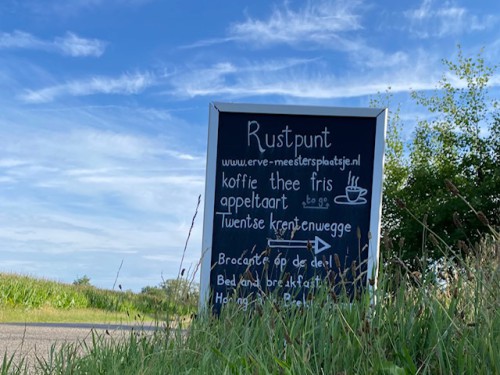 Rustpunt
www.erve-meestersplaatsje.nl
koffie thee fris
appeltaart to go
Twentse krentenwegge
Brocante op de deel
Bed and breakfast